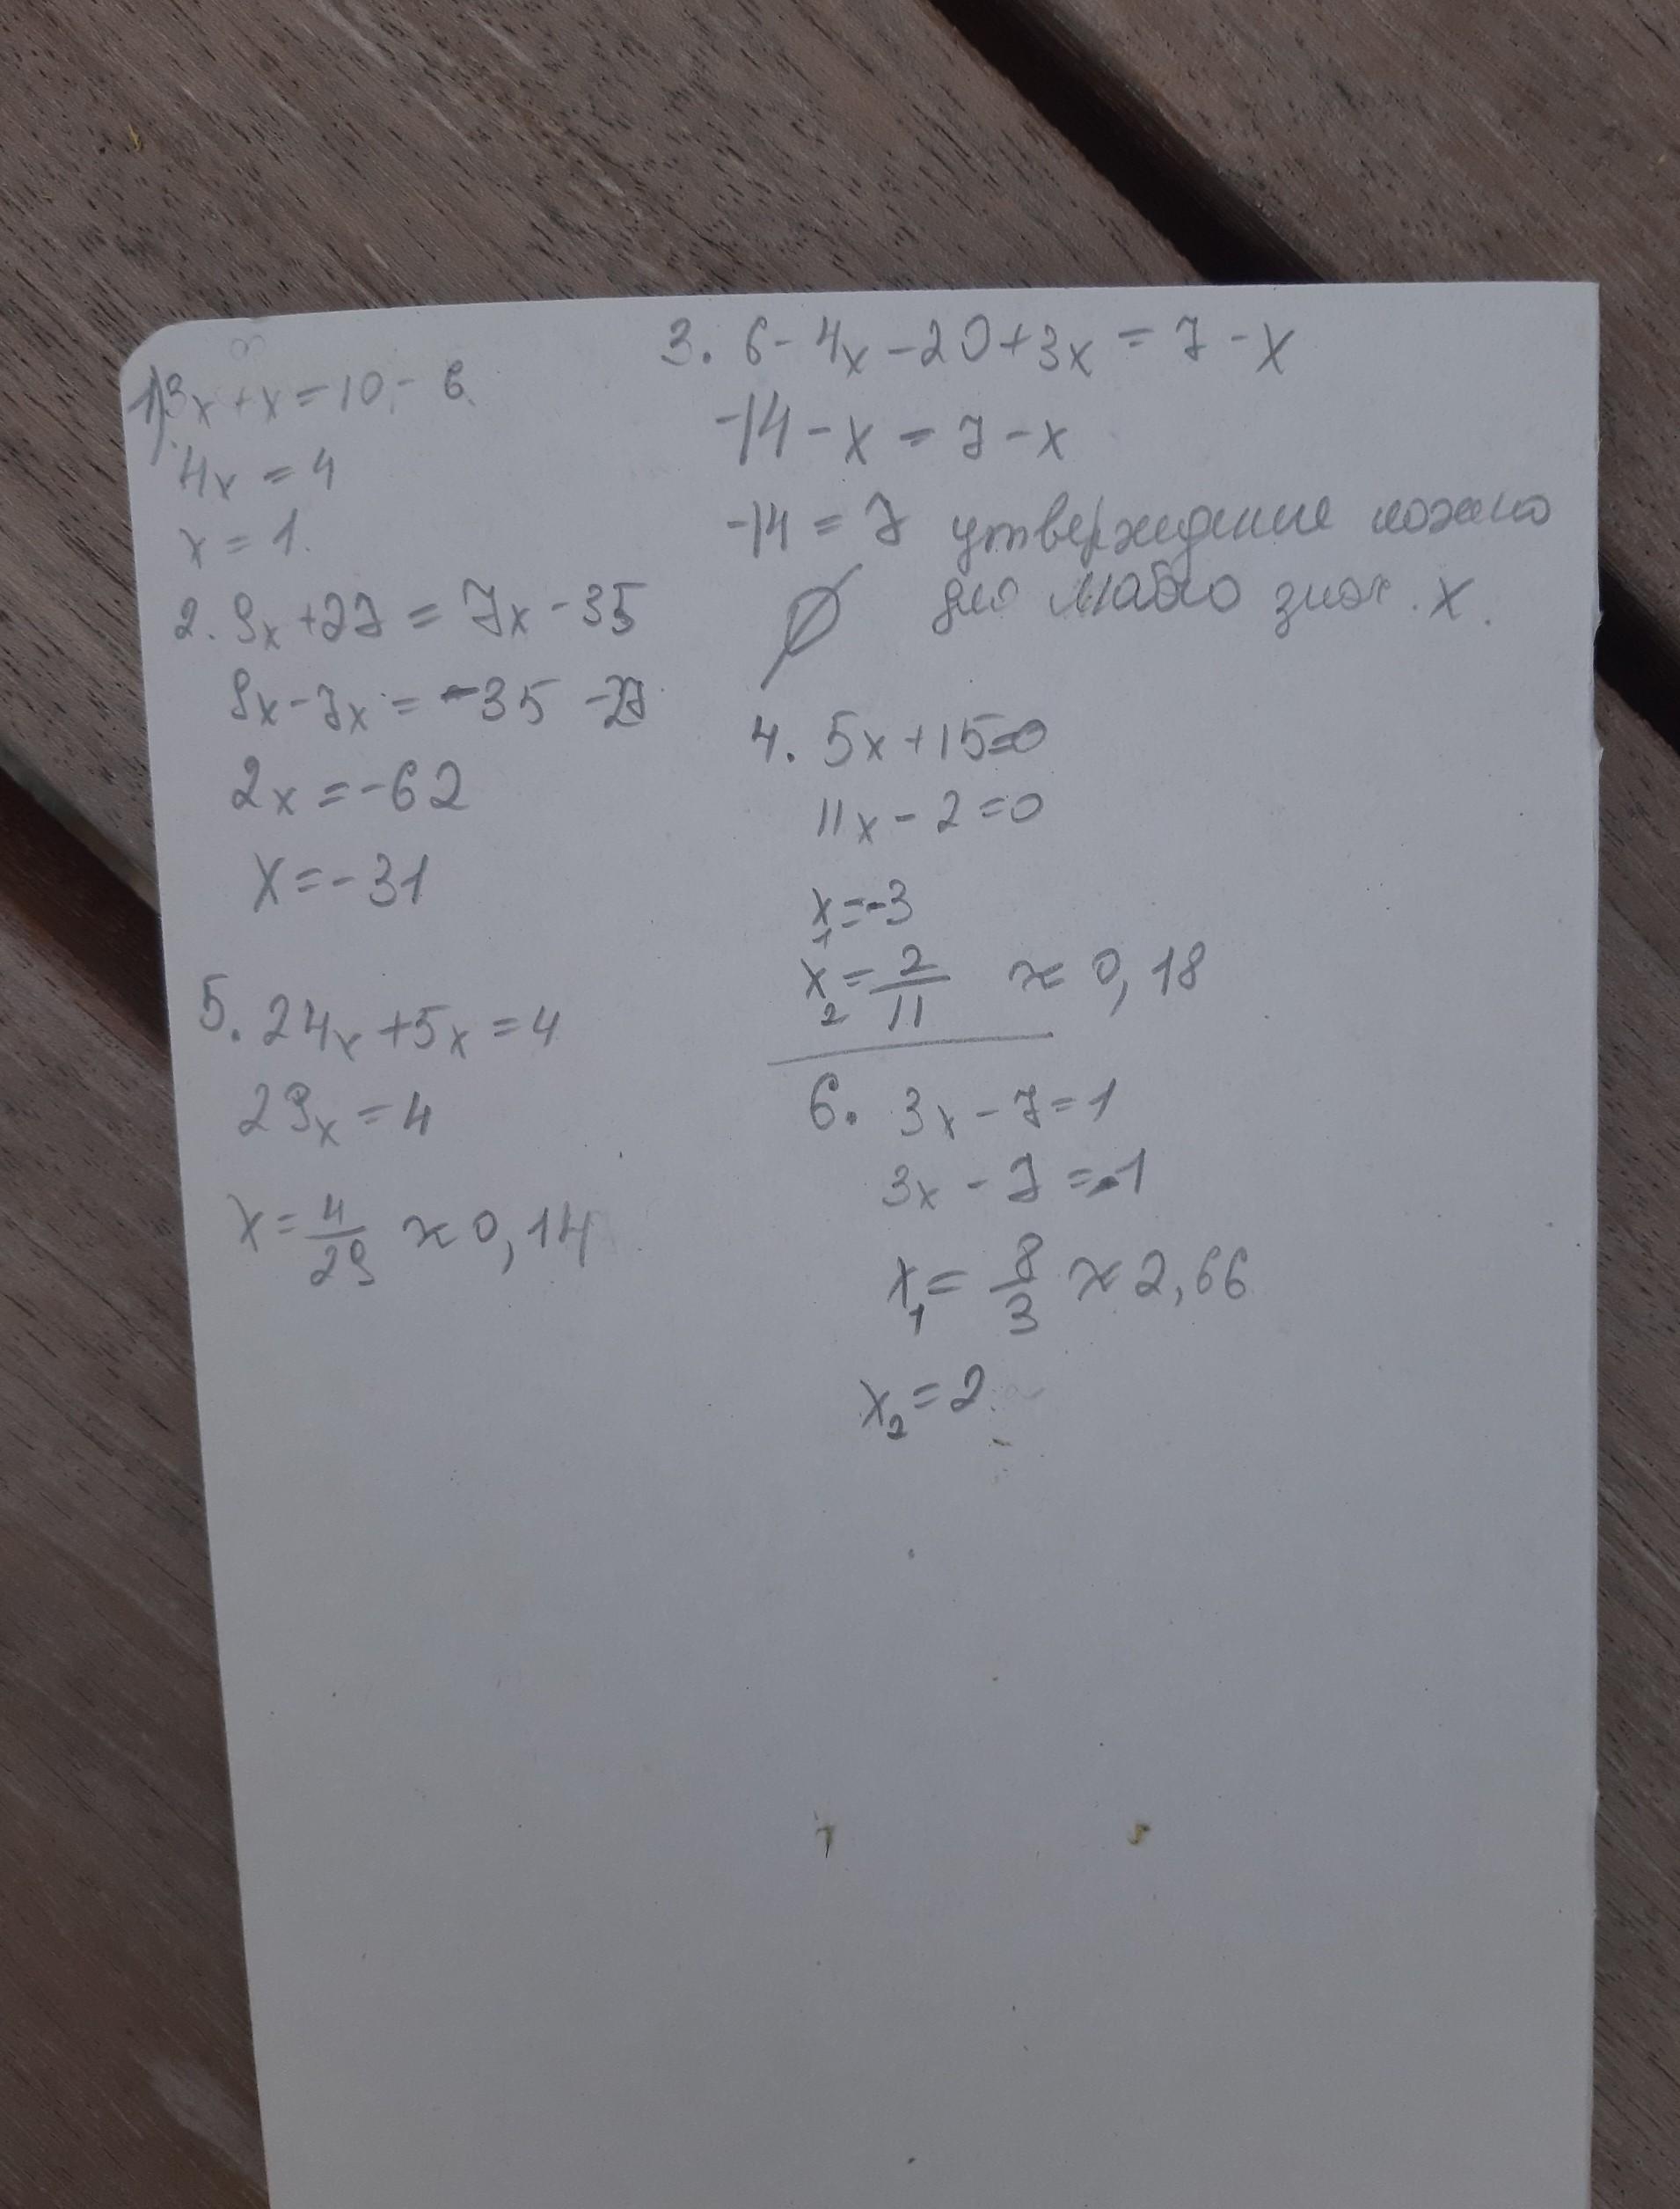 1) 3x + x = 10 - 6
4x = 4
x = 1.
2. 9x + 27 = 7x - 35
9x - 7x = -35 - 27
2x = -62
x = -31
5. 24x + 5x = 4
29x = 4
x = 4/29 ≈ 0,14
3. 6 - 4x - 20 + 3x = 7 - x
-14 - x = 7 - x
-14 = 7 утверждение ложно
∅ для любого знач. x.
4. 5x + 15 = 0
11x - 2 = 0
x₁ = -3
x₂ = 2/11 ≈ 0,18
6. 3x - 7 = 1
3x - 7 = -1
x₁ = 8/3 ≈ 2,66
x₂ = 2